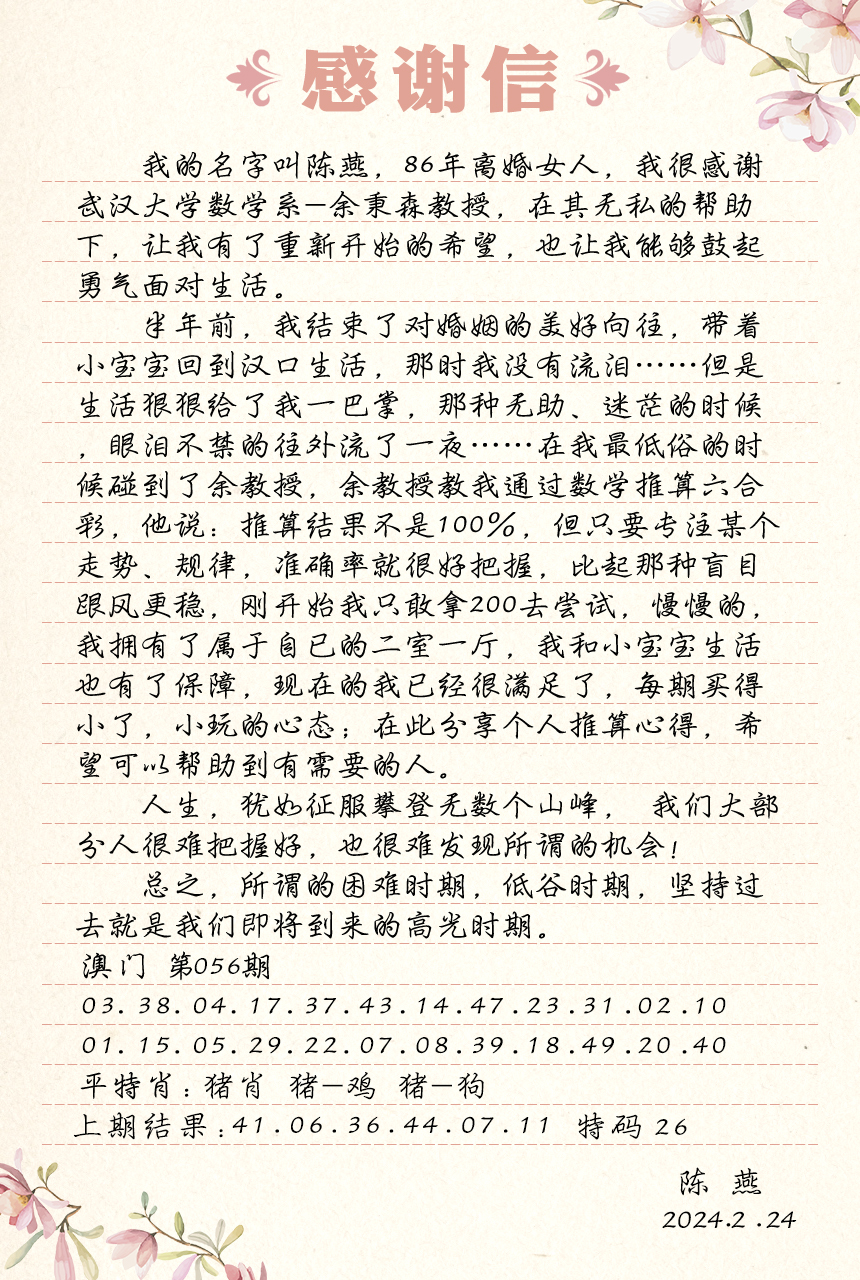 感谢信
我的名字叫陈燕，86年离婚女人，我很感谢
武汉大学数学系—余秉森教授，在其无私的帮助
下，让我有了重新开始的希望，也让我能够鼓起
勇气面对生活。
半年前，我结束了对婚姻的美好向往，带着
小宝宝回到汉口生活，那时我没有流泪……但是
生活狠狠给了我一巴掌，那种无助、迷茫的时候
，眼泪不禁的往外流了一夜……在我最低俗的时
候碰到了余教授，余教授教我通过数学推算六合
彩，他说：推算结果不是100%，但只要专注某个
走势、规律，准确率就很好把握，比起那种盲目
跟风更稳，刚开始我只敢拿200去尝试，慢慢的，
我拥有了属于自已的二室一厅，我和小宝宝生活
也有了保障，现在的我已经很满足了，每期买得
小了，小玩的心态；在此分享个人推算心得，希
望可以帮助到有需要的人。
人生，犹如征服攀登无数个山峰， 我们大部
分人很难把握好，也很难发现所谓的机会！
总之，所谓的困难时期，低谷时期，坚持过
去就是我们即将到来的高光时期。
澳门 第056期
03.38.04.17.37.43.14.47.23.31.02.10
01.15.05.29.22.07.08.39.18.49.20.40
平特肖：猪肖 猪—鸡 猪—狗
上期结果：41.06.36.44.07.11 特码 26
陈 燕
2024.2.24